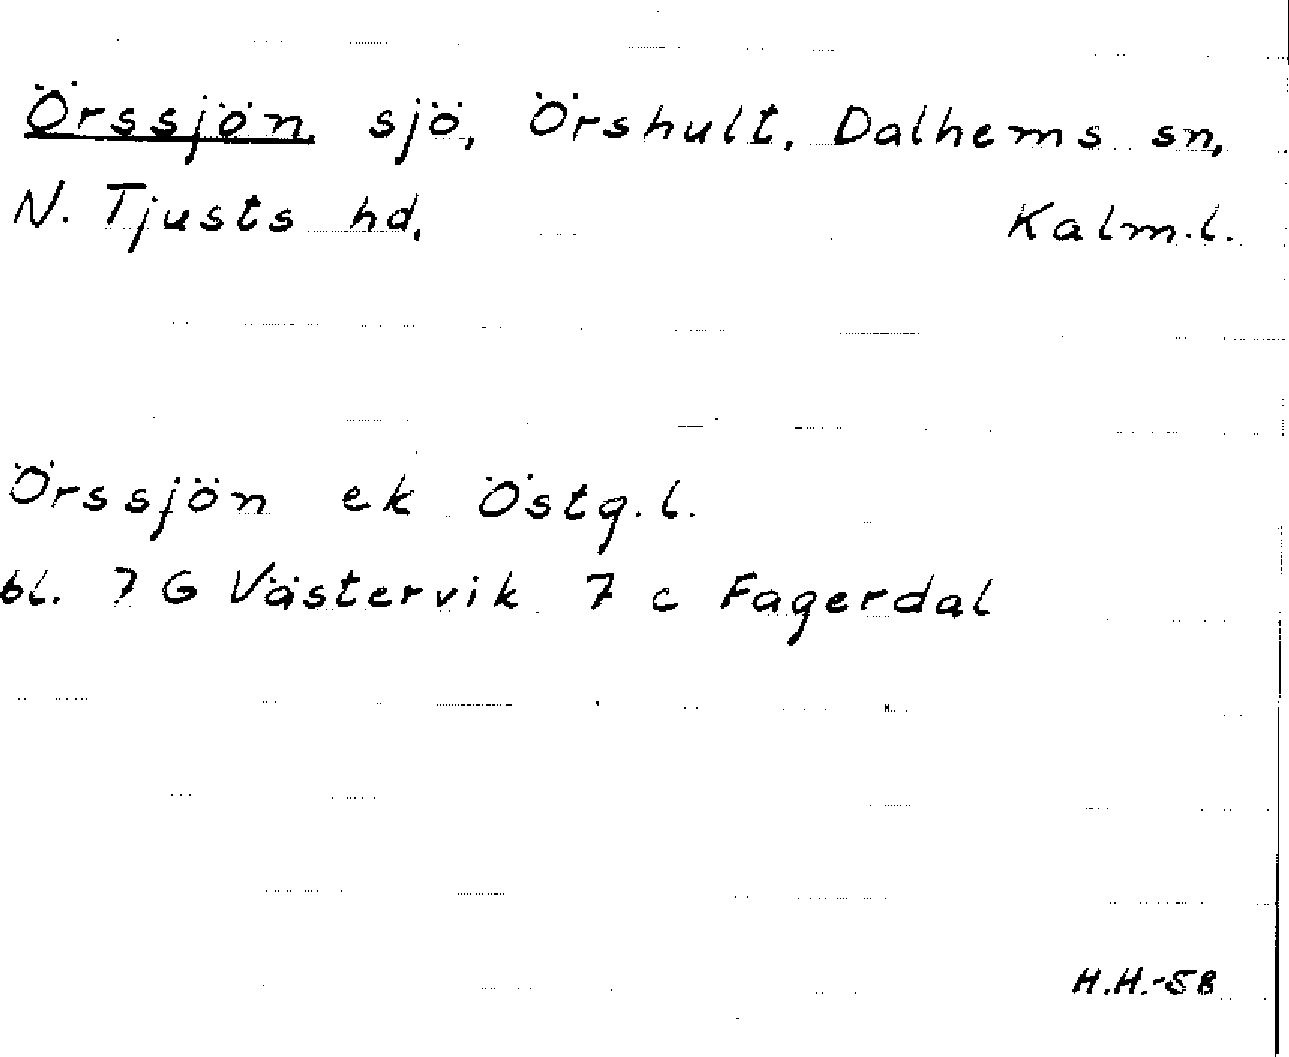 Örssjön sjö, Örshult, Dalhems sn,
N. Tjusts hd, Kalm.l.
Örssjön ek Östg.l.
bl. 7 G Västervik 7 c Fagerdal
H.H.-58